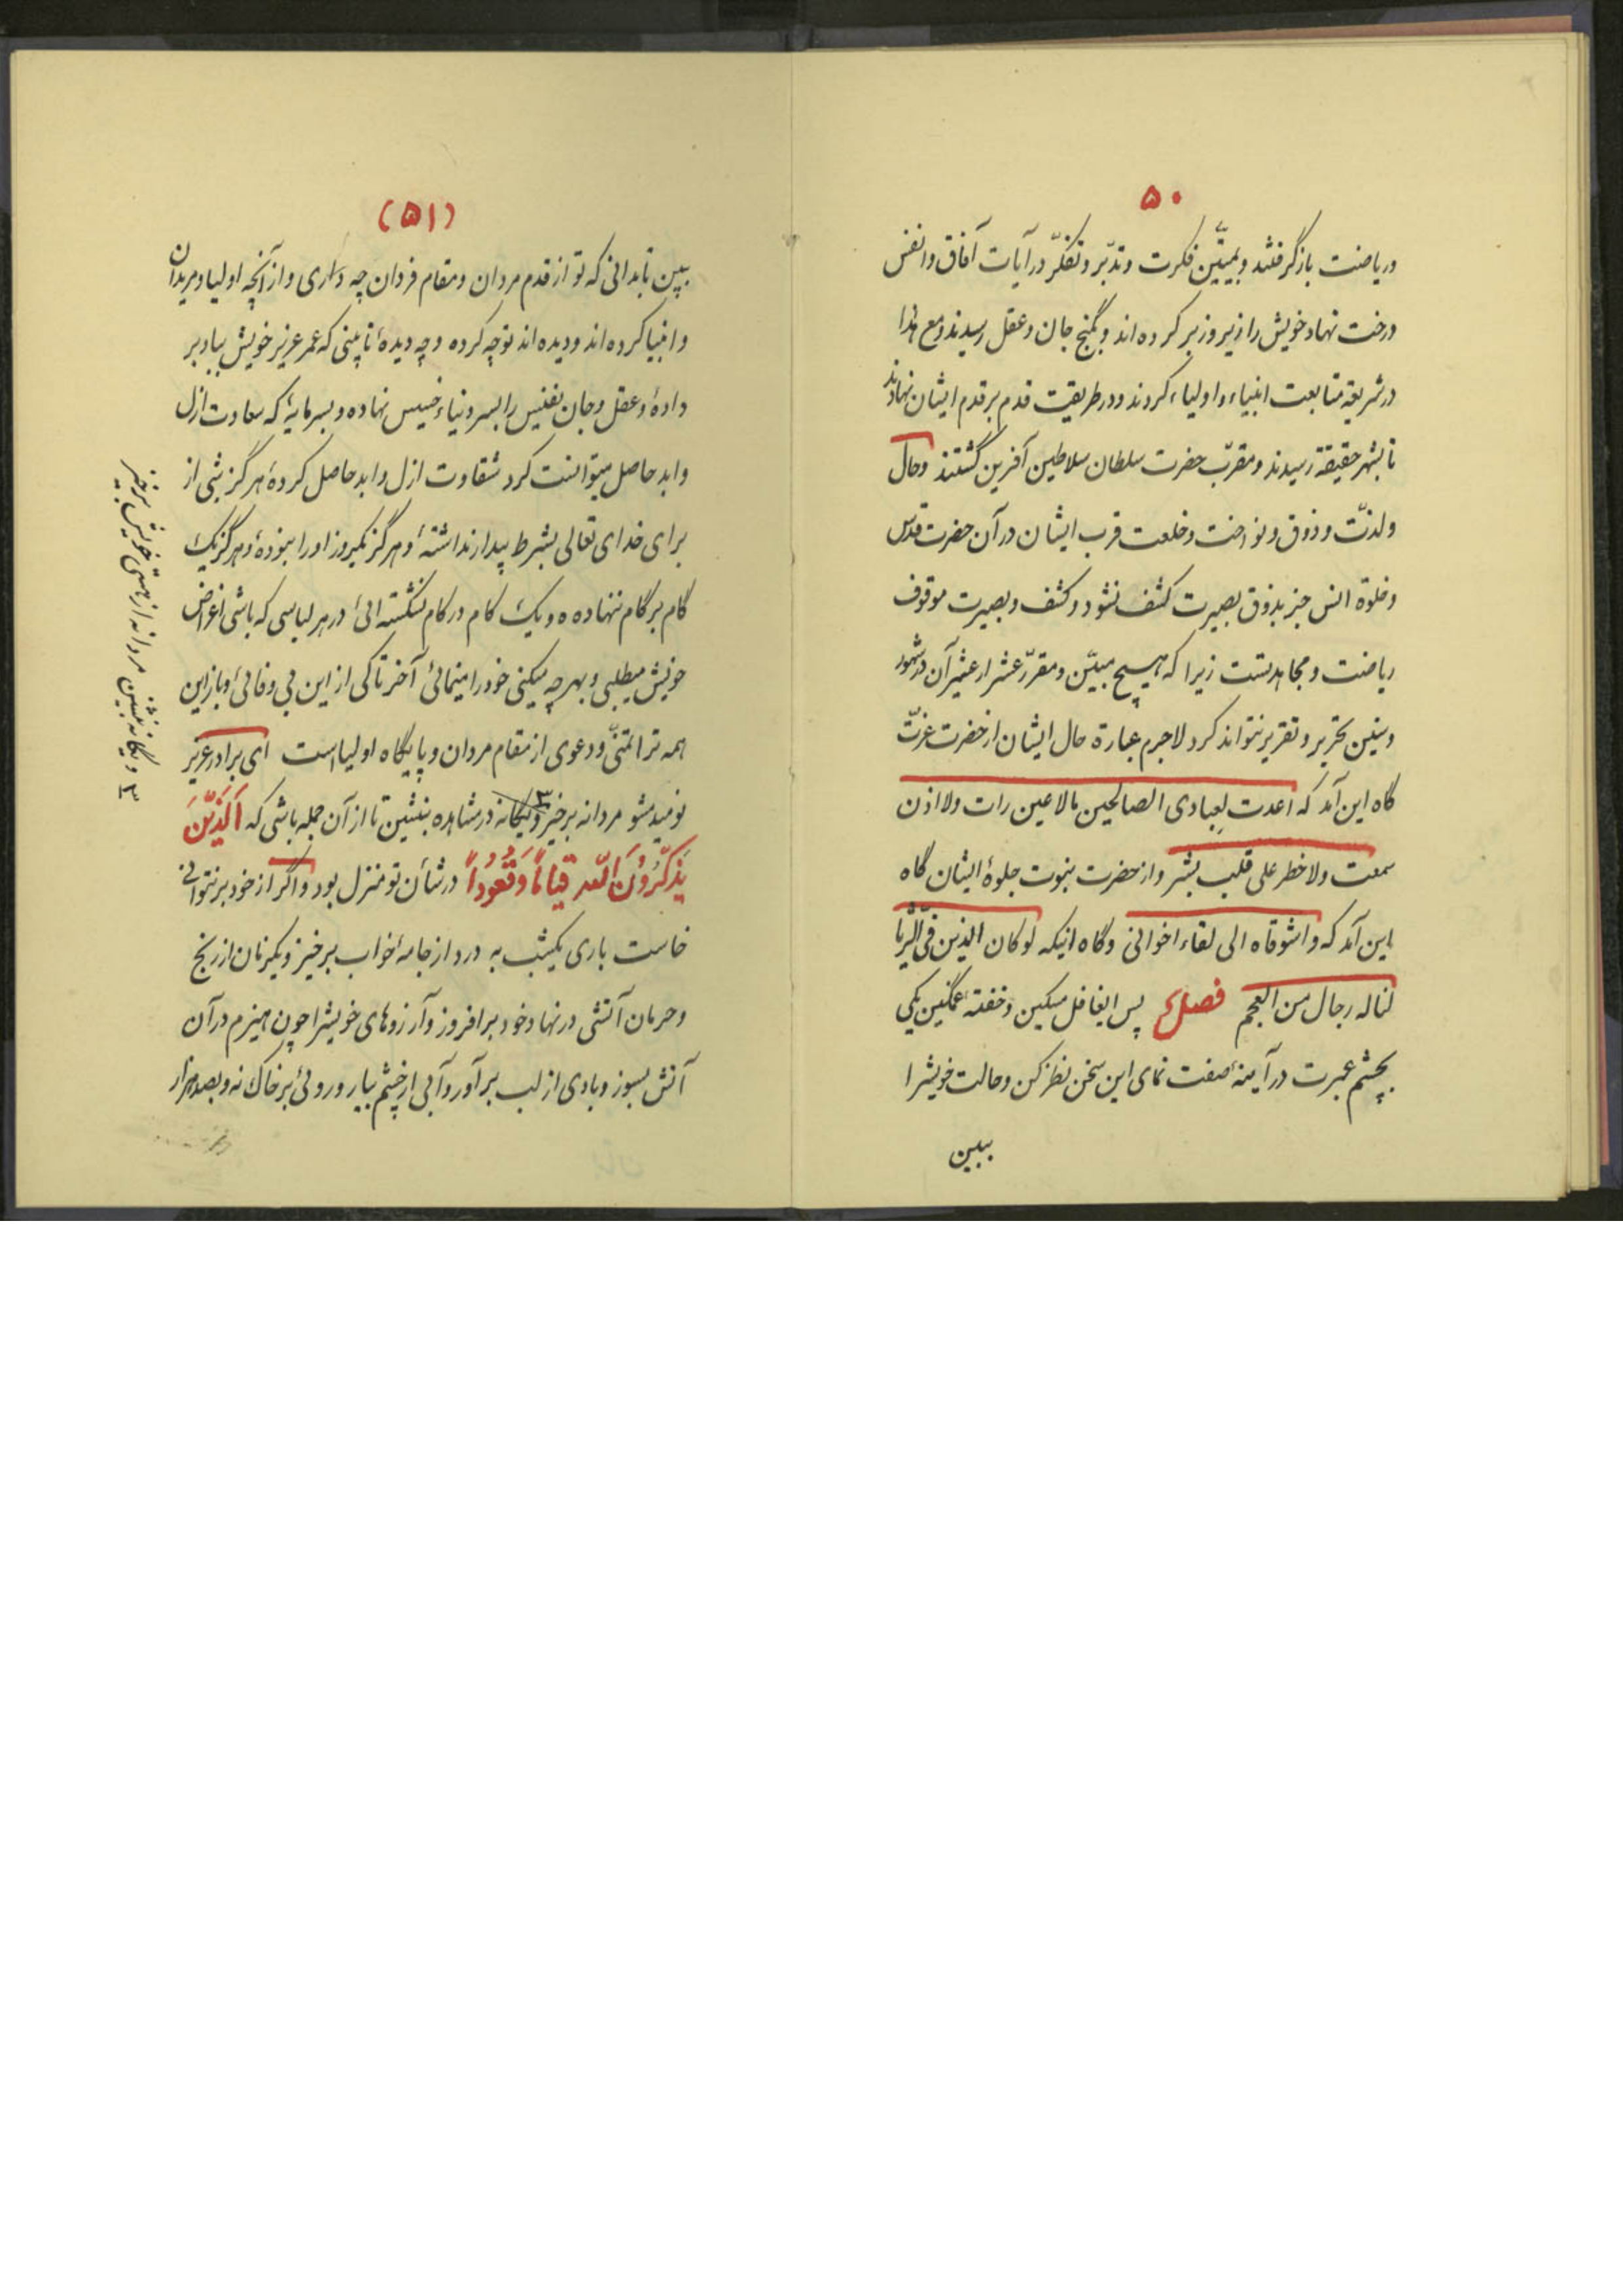 ۵۰
وریاضت بازگرفتند وبمیتین فکرت وتدبّر وتفکّر درآیات آفاق وانفس
درخت نهاد خویش را زیر وزبر کرده اند وبگنج جان وعقل رسیدند ومع هذا
درشریعة متابعت انبیاء واولیاء کردند ودرطریقت قدم بر قدم ایشان نهادند
تا بشهر حقیقة رسیدند ومقرّب حضرت سلطان سلاطین آفرین گشتند وحال
ولذّت وذوق ونواخت وخلعت قرب ایشان درآن حضرت قدس
وخلوة انس جز بذوق بصیرت کشف نشود وکشف وبصیرت موقوف
ریاضت ومجاهدتست زیرا که هیچ مبیّن ومقرّر عشر ارعشیر آن درشهور
وسنین بتحریر وتقریر نتواند کرد لاجرم عبارة حال ایشان ازحضرت عزّت
گاه این آمد که اعدت لِعبادی الصالحین مالاعین رات ولا اذن
سمعت ولاخطر علی قلب بشر واز حضرت نبوت جلوۀ ایشان گاه
باین آمد که واشوقاه الی لقاء اخوانی وگاه اینکه لوکان الدین فی الثّریا
لناله رجال من العجم فصل پس ایغافل مسکین وخفتۀ غمگین یکی
بچشم عبرت درآینۀ صفت نمای این سخن نظر کن وحالت خویشرا
ببین
(۵۱)
ببین تابدانی که تو از قدم مردان ومقام فردان چه داری واز آنچه اولیا ومریدان
وانبیا کرده اند ودیده اند توچه کرده وچه دیدۀ تا بینی که عمر عزیز خویش بباد بر
دادۀ وعقل وجان نفیس را بسر دنیاء خسیس نهاده وبسرمایۀ که سعادت ازل
وابد حاصل میتوانست کرد شقاوت ازل وابد حاصل کردۀ هرگز شبی از
برای خدای تعالی بشرط بیدار نداشتۀ وهرگز یکروز اورا نبودۀ وهرگز یک
گام برگام ننهاده ه ویک کام درکام نشکستۀ درهر لباسی که باشی اغراض
خویش میطلبی وبهرچه میکنی خود را مینمائی آخر تاکی از این بی وفائی اوباز این
همه ترا تمنّی ودعوی از مقام مردان وپایگاه اولیااست ای برادر عزیز
نومید مشو مردانه برخیز ۳ ویگانه درمشاهده بنشین تا از آن جمله باشی که اَلَّذینَ
یَذکُرُونَ اللّه قیاماً وَقُعُوداً درشأن تو منزل بود واگر از خود برنتوانی
خاست باری یکشب به درد از جامۀ خواب برخیز ویکزمان از رنج
وحرمان آتشی درنهاد خود برافروز وآرزوهای خویشرا چون هیزم درآن
آتش بسوز وبادی از لب برآور وآبی ازچشم ببار وروئی برخاک نه وبصدهزار
۳ ویگانه بنشین مردانه از هستی خویش برخیز